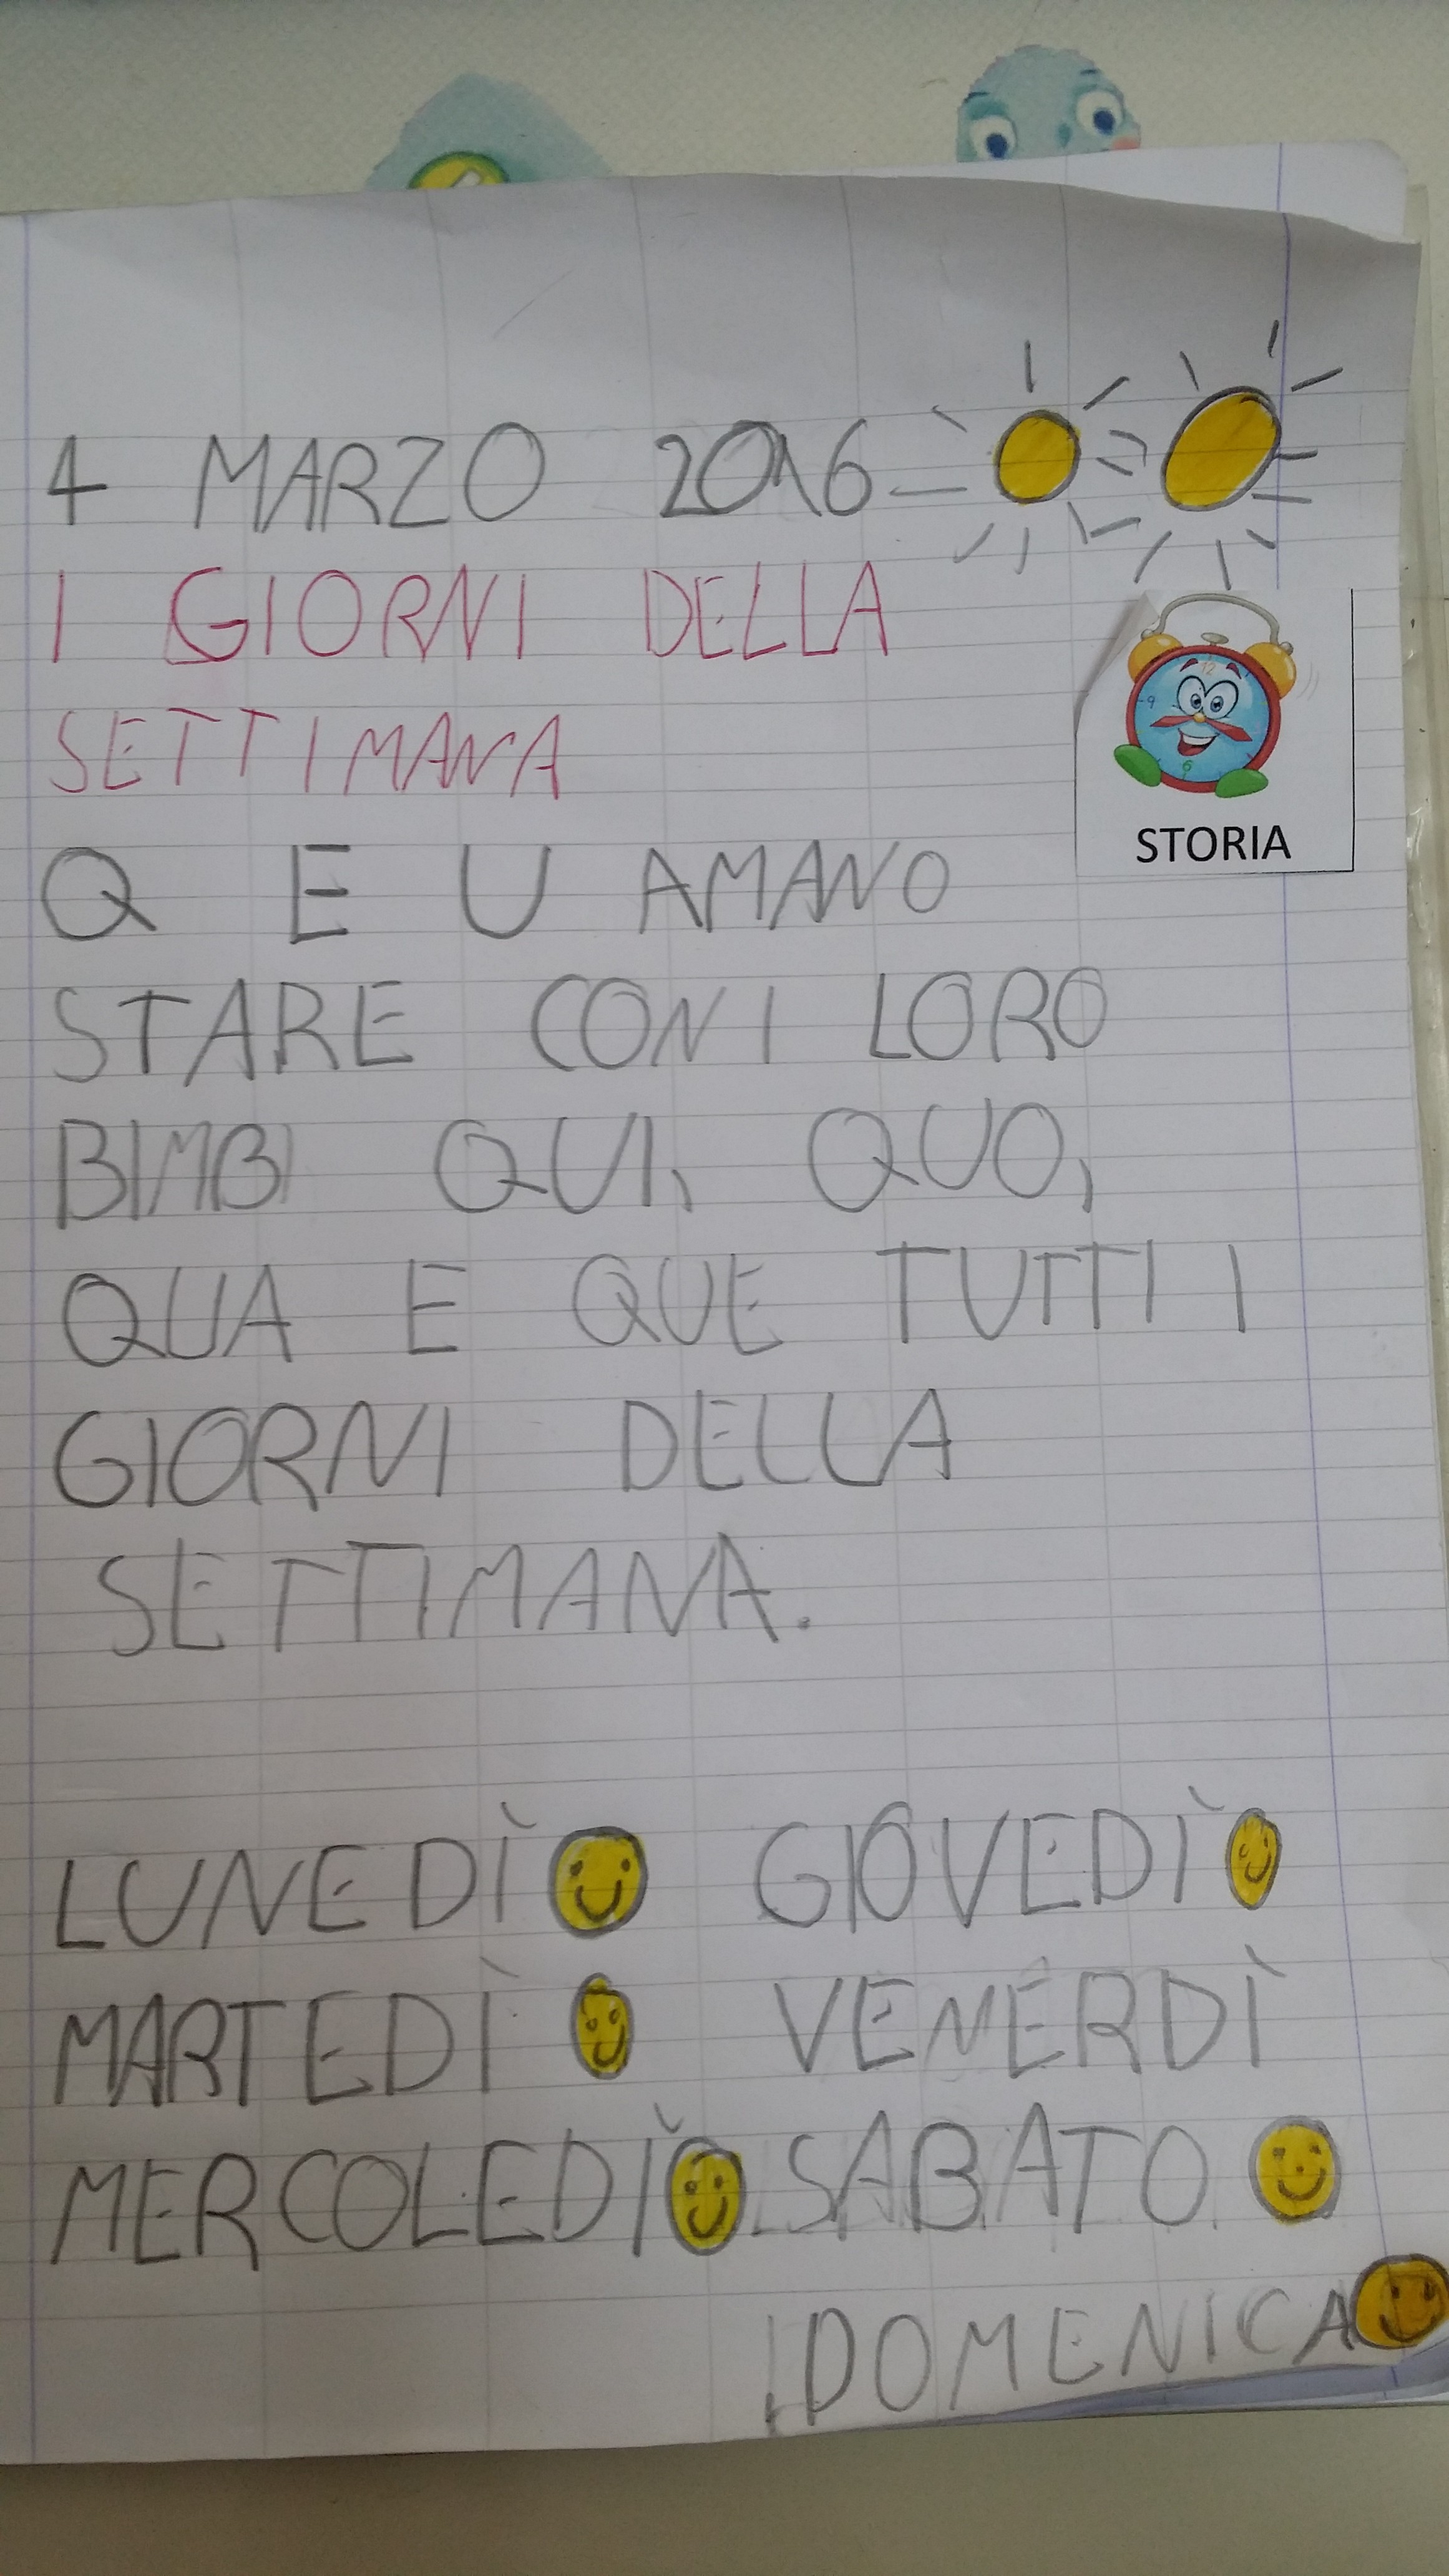 4 MARZO 2016
I GIORNI DELLA
SETTIMANA
STORIA
Q E U AMANO
STARE CON I LORO
BIMBI QUI, QUO,
QUA E QUE TUTTI I
GIORNI DELLA
SETTIMANA.
LUNEDÌ GIOVEDÌ
MARTEDÌ VENERDÌ
MERCOLEDÌ SABATO
DOMENICA